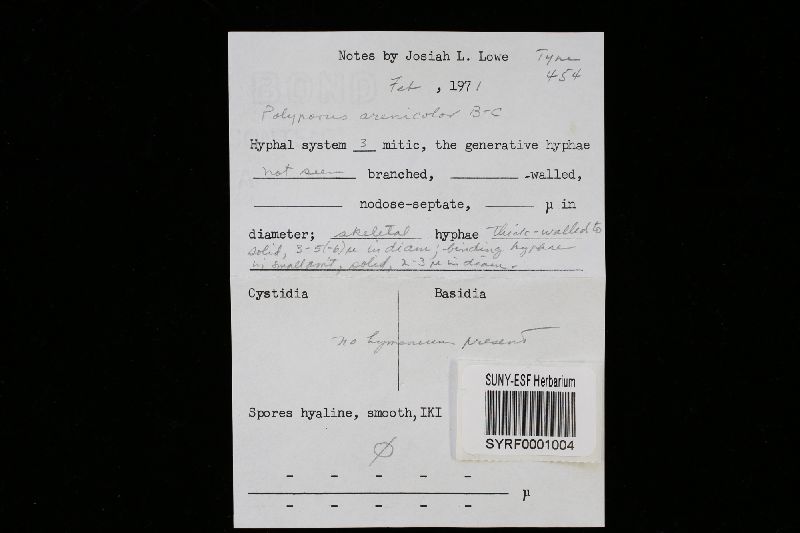 Notes by Josiah L. Lowe Type
454
Feb , 1971
Polyporus arenicolor B-C
Hyphal system 3 mitic, the generative hyphae
not seen branched, -walled,
nodose-septate, µ in
diameter; skeletal hyphae thick-walled to
solid, 3-5(-6)µ in diam; binding hyphae
in small am't, solid, 2-3 µ in diam.
Cystidia Basidia
no hymenium present
Spores hyaline, smooth, IKI
Ø
- - - - -
µ
- - - - -
SUNY-ESF Herbarium
SYRF0001004